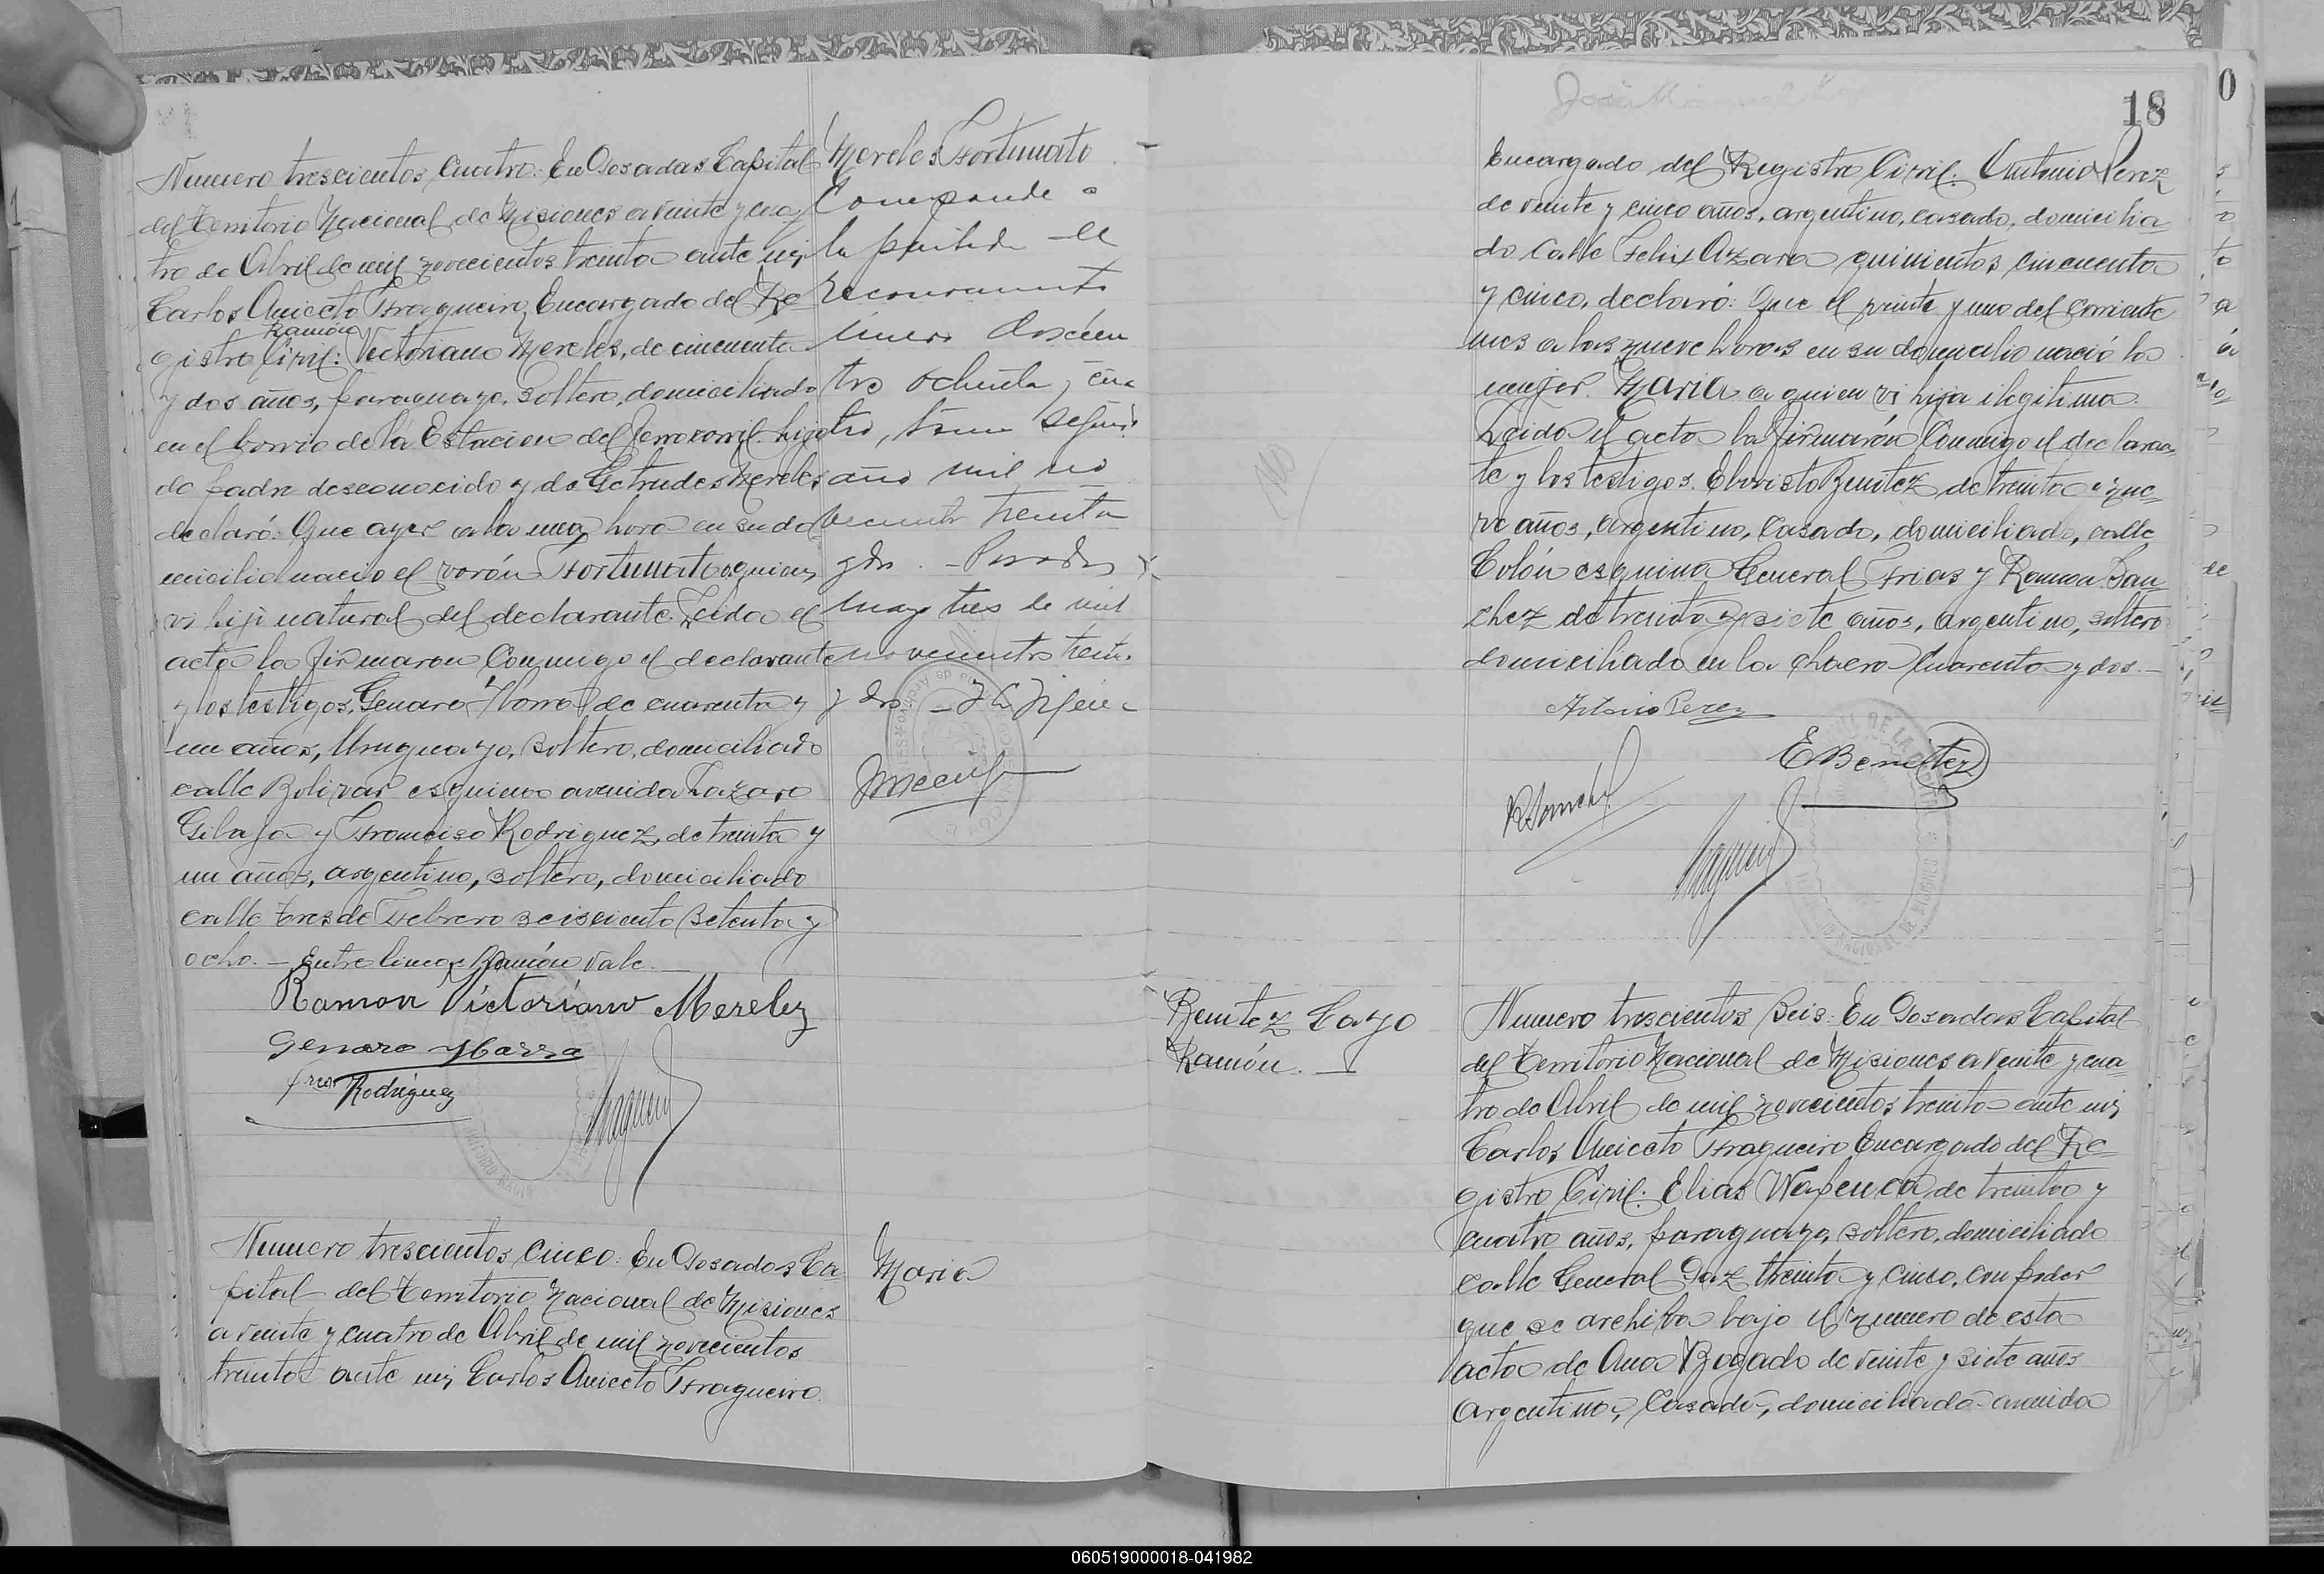 Numero trescientos cuatro: En Posadas Capital
del Territorio Nacional de Misiones a veinte y cua
tro de Abril de mil novecientos treinta ante mi
Carlos Aniceto Fragueiro, Encargado del Re
Ramón
gistro Civil: Victoriano Mereles, de cincuenta
y dos años, paraguayo, soltero, domiciliado
en el barrio de la Estacion del ferrocarril, hijo
de padre desconocido y de Getrudes Mereles
declaró: Que ayer a la una hora en su do
micilio nacio el varón Fortunato a quien
vi hijo natural del declarante. Leida el
acta la firmaron conmigo el declarante
y los testigos, Genaro Ybarra de cuarenta y
un años, Uruguayo, soltero, domiciliado
calle Bolivar esquina avenida Lazaro
Gibaja y Francisco Rodriguez, de treinta y
un años, argentino, soltero, domiciliado
calle tres de Febrero seisciento setenta y
ocho. - Entre lineas Ramón Vale. -
Ramon Victoriano Merelez
Genaro Ybarra
frco Rodriguez
Mereles Fortunato
Corresponde a
la partida de
reconocimiento
número doscien
tos ochenta y cua
tro, tomo segundo
año mil no
vecientos treinta
y dos. - Posadas
Mayo tres de mil
novecientos treinta
y dos -
Numero trescientos cinco: En Posadas Ca-
pital del Territorio Nacional de Misiones
a veinte y cuatro de Abril de mil novecientos
treinta ante mi Carlos Aniceto Fragueiro.
Maria
18
Encargado del Registro Civil: Antonio Perez
de veinte y cinco años, argentino, casado, domicilia-
do calle Felix Azara quinientos cincuenta
y cinco, declaró: Que el veinte y uno del corriente
mes a las nueve horas en su domicilio nació la
mujer. Maria a quien vi hija ilegitima.
Leida el acta la firmarón conmigo el declaran
te y los testigos. Ebaristo Benitez de treinta y nue-
ve años, argentino, casado, domiciliado, calle
Colón esquina General Frias y Ramon San-
chez de treinta y siete años, argentino, soltero
domiciliado en la chacra cuarenta y dos. -
Antonio Perez
E Benitez
Benitez Cayo
Ramón. -
Numero trescientos Seis: En Posadas Capital
del Territorio Nacional de Misiones a veinte y cua-
tro de Abril de mil novecientos treinta ante mi
Carlos Aniceto Fragueiro Encargado del Re-
gistro Civil: Elias de treinta y
cuatro años, paraguayo, soltero, domiciliado
calle General Paz treinta y cinco, con poder
que se archiva bajo el numero de esta
acta de Ana Bogado de veinte y siete años
Argentina, Casada, domiciliada avenida
060519000018-041982